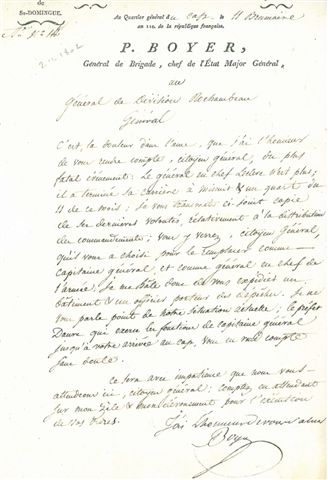 de St-DOMINGUE.
2-11-1802
Au Quartier général du Cap le 11 Brumaire
an 11e. de la république française.
P. BOYER,
Général de Brigade, chef de l'État Major Général,
au
Général de Division Rochambeau
Général
C'est, la douleur dans l'ame, que j'ai l'honneur
de vous rendre compte, citoyen général, du plus
fatal événement. Le général en chef Leclerc n'est plus;
il a terminé sa carrière à minuit & un quart du
11 de ce mois; Je vous transmets ci-joint copie
de ses dernières volontés, relativement à la distribution
des commandements; vous y verrez, citoyen Général,
qu'il vous a choisi pour le remplacer comme
capitaine général, et comme général en chef de
l'armée. Je me hâte donc de vous expédier un
bâtiment & un officier porteur des dépêches. Je ne
vous parle point de notre situation actuelle; le préfet
Daure qui exerce les fonctions de capitaine général
jusqu'à votre arrivée au cap, vous en rend compte
sans doute.
Ce sera avec impatience que nous vous
attendrons ici, citoyen général; comptez, en attendant
sur mon zèle & mon dévouement pour l'exécution
de vos ordres.
J'ai l'honneur de vous saluer
Boyer